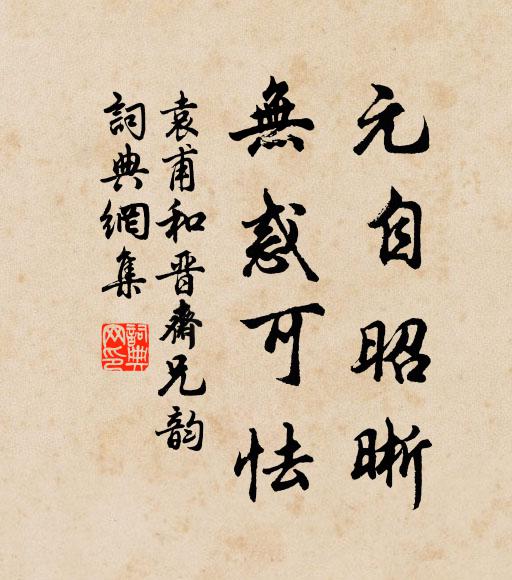 元自昭晰
無惑可怯
袁甫和晋齋兄韵
詞典網集
詞典網印